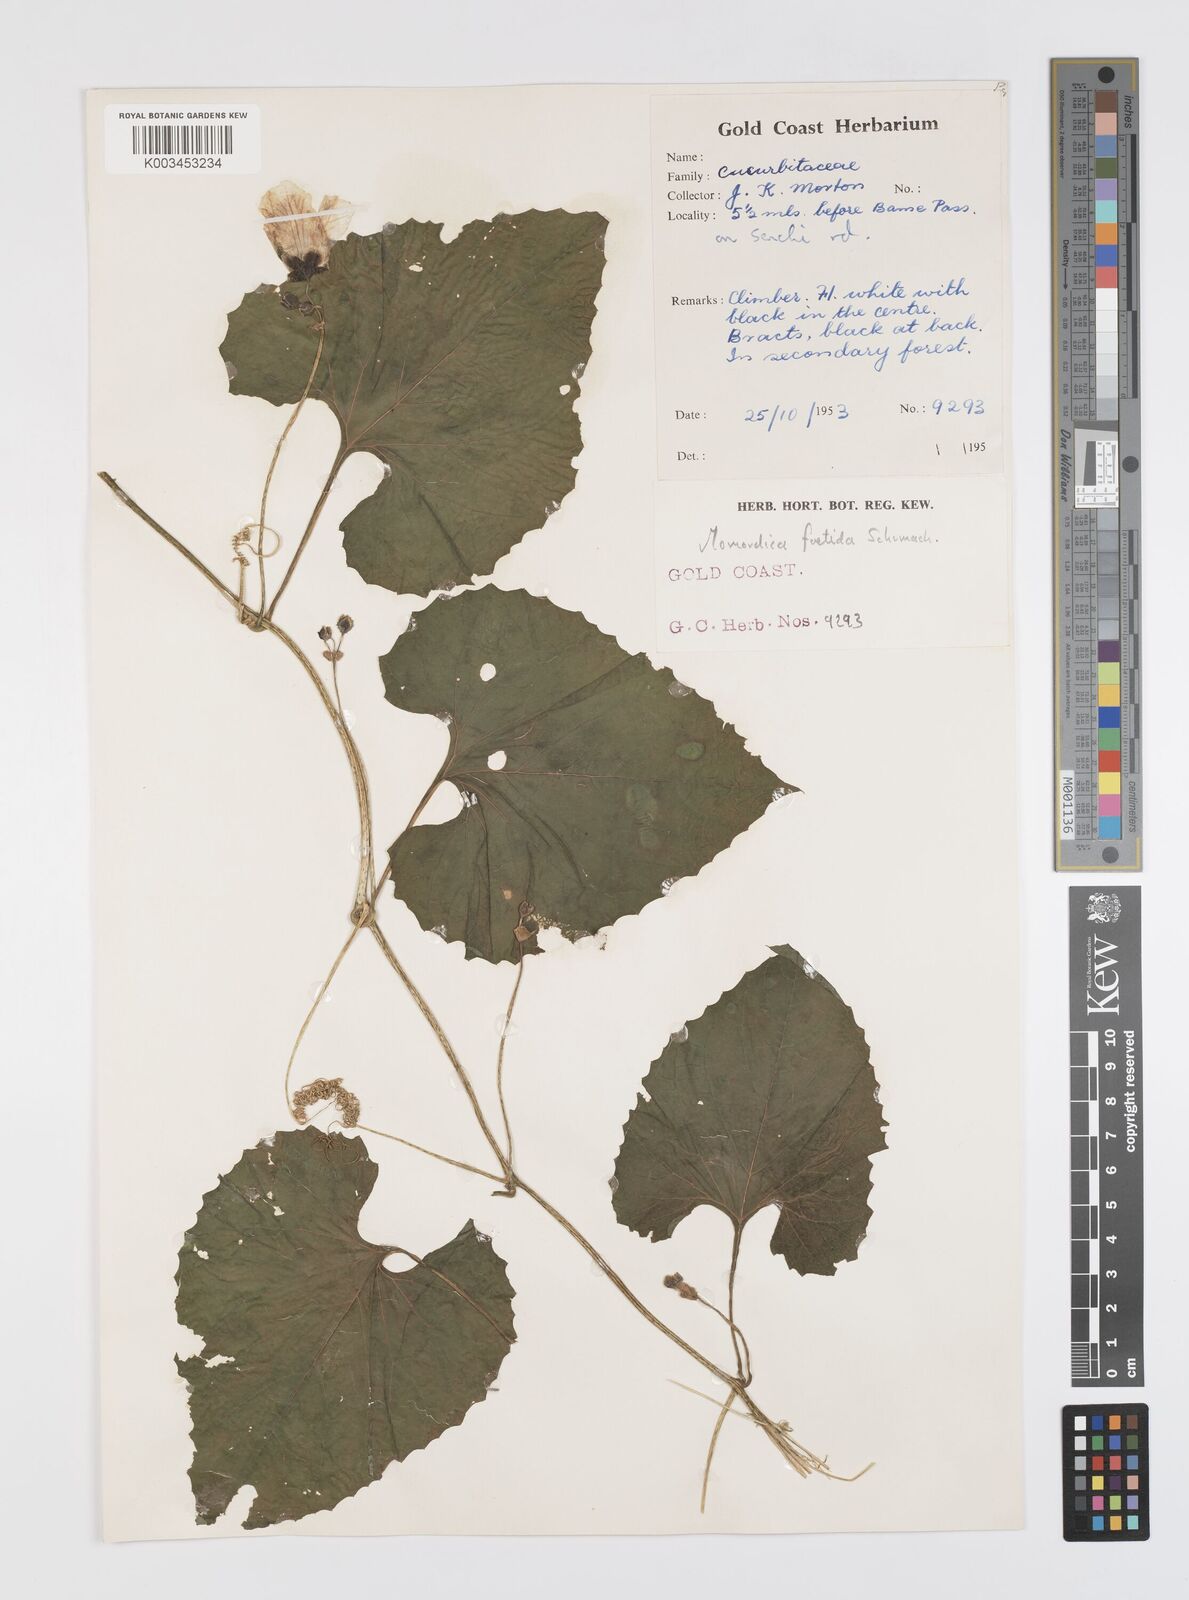 ROYAL BOTANIC GARDENS KEW
K003453234
Gold Coast Herbarium
Name :
Family : Cucurbitaceae
Collector : J. K. Morton No. :
Locality : 5½ mls. before Bame Pass.
on Senchi rd.
Remarks : Climber. Fl. white with
black in the centre.
Bracts, black at back.
In secondary forest.
Date : 25/10/1953 No. : 9293
Det. : / /195
HERB. HORT. BOT. REG. KEW.
Momordica foetida Schumach.
GOLD COAST.
G. C. Herb. Nos. 9293
inches
centimeters
Density
Don Williams
M001136
Kew
Royal Botanic Gardens
copyright reserved
0 1 2 3 4 5 6 7 8 9 10
cm